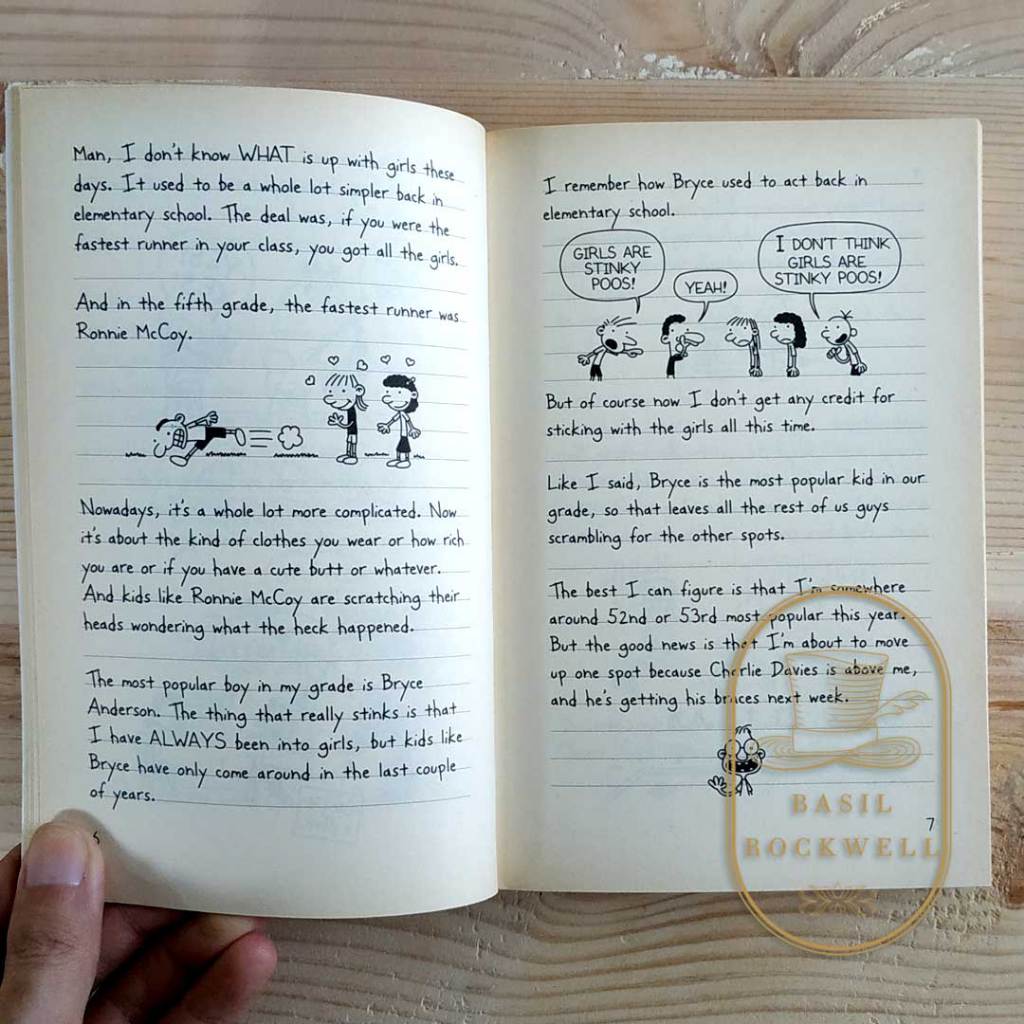 Man, I don't know WHAT is up with girls these
days. It used to be a whole lot simpler back in
elementary school. The deal was, if you were the
fastest runner in your class, you got all the girls.
And in the fifth grade, the fastest runner was
Ronnie McCoy.
Nowadays, it's a whole lot more complicated. Now
it's about the kind of clothes you wear or how rich
you are or if you have a cute butt or whatever.
And kids like Ronnie McCoy are scratching their
heads wondering what the heck happened.
The most popular boy in my grade is Bryce
Anderson. The thing that really stinks is that
I have ALWAYS been into girls, but kids like
Bryce have only come around in the last couple
of years.
6
I remember how Bryce used to act back in
elementary school.
GIRLS ARE
STINKY
POOS!
YEAH!
I DON'T THINK
GIRLS ARE
STINKY POOS!
But of course now I don't get any credit for
sticking with the girls all this time.
Like I said, Bryce is the most popular kid in our
grade, so that leaves all the rest of us guys
scrambling for the other spots.
The best I can figure is that I'm somewhere
around 52nd or 53rd most popular this year.
But the good news is that I'm about to move
up one spot because Charlie Davies is above me,
and he's getting his braces next week.
7
BASIL
ROCKWELL